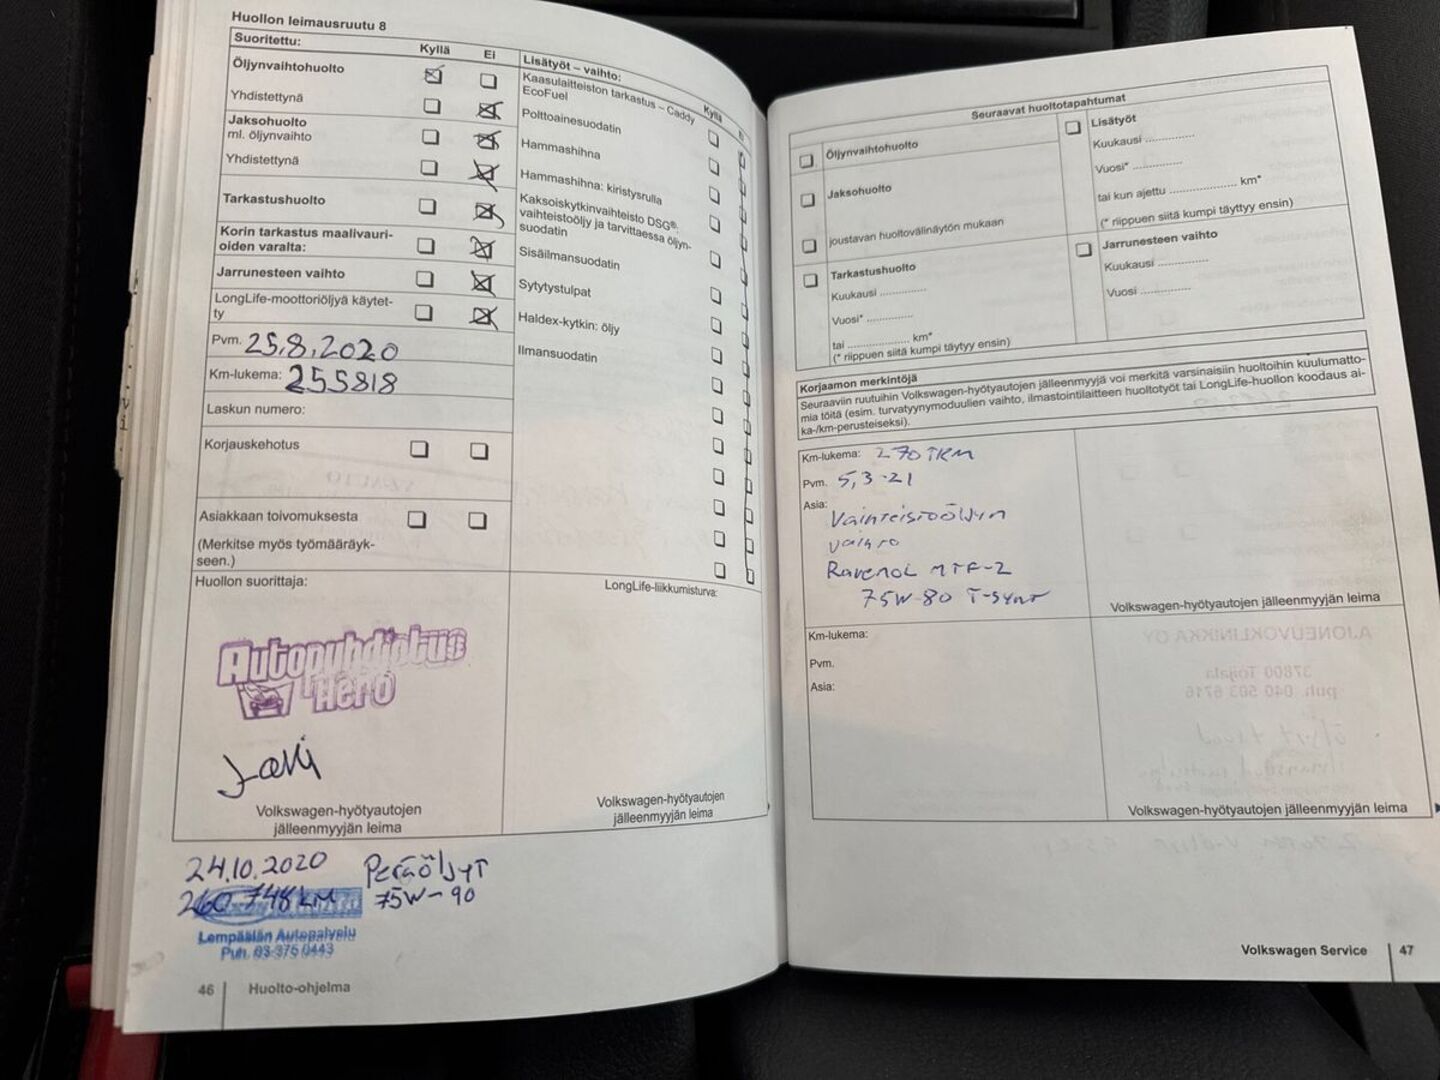 Huollon leimausruutu 8
Suoritettu:
Kyllä Ei
Öljynvaihtohuolto
Yhdistettynä
Jaksohuolto
ml. öljynvaihto
Yhdistettynä
Tarkastushuolto
Korin tarkastus maalivauri-
oiden varalta:
Jarrunesteen vaihto
LongLife-moottoriöljyä käytet-
ty
Pvm. 25.8.2020
Km-lukema: 255818
Laskun numero:
Korjauskehotus
Asiakkaan toivomuksesta
(Merkitse myös työmääräyk-
seen.)
Huollon suorittaja:
Autopuhdistus
Hero
Volkswagen-hyötyautojen
jälleenmyyjän leima
Lisätyöt – vaihto:
Kyllä
Kaasulaitteiston tarkastus – Caddy
EcoFuel
Polttoainesuodatin
Hammashihna
Hammashihna: kiristysrulla
Kaksoiskytkinvaihteisto DSG®:
vaihteistoöljy ja tarvittaessa öljyn-
suodatin
Sisäilmansuodatin
Sytytystulpat
Haldex-kytkin: öljy
Ilmansuodatin
LongLife-liikkumisturva:
Volkswagen-hyötyautojen
jälleenmyyjän leima
24.10.2020 Peräöljyt
260 748 km 75W-90
Lempäälän Autopalvelu
Puh. 03-375 0443
46 Huolto-ohjelma
Seuraavat huoltotapahtumat
Öljynvaihtohuolto
Jaksohuolto
joustavan huoltovälinäytön mukaan
Tarkastushuolto
Kuukausi ..............
Vuosi* ..............
tai .................... km*
(* riippuen siitä kumpi täytyy ensin)
Lisätyöt
Kuukausi ..............
Vuosi* ..............
tai kun ajettu .................... km*
(* riippuen siitä kumpi täyttyy ensin)
Jarrunesteen vaihto
Kuukausi ..............
Vuosi ..............
Korjaamon merkintöjä
Seuraaviin ruutuihin Volkswagen-hyötyautojen jälleenmyyjä voi merkitä varsinaisiin huoltoihin kuulumatto-
mia töitä (esim. turvatyynymoduulien vaihto, ilmastointilaitteen huoltotyöt tai LongLife-huollon koodaus ai-
ka-/km-perusteiseksi).
Km-lukema: 270 TKM
Pvm. 5,3-21
Asia:
Vaihteistoöljyn
vaihto
Ravenol MTF-2
75W-80 T-synt
Volkswagen-hyötyautojen jälleenmyyjän leima
Km-lukema:
Pvm.
Asia:
Volkswagen-hyötyautojen jälleenmyyjän leima
Volkswagen Service 47